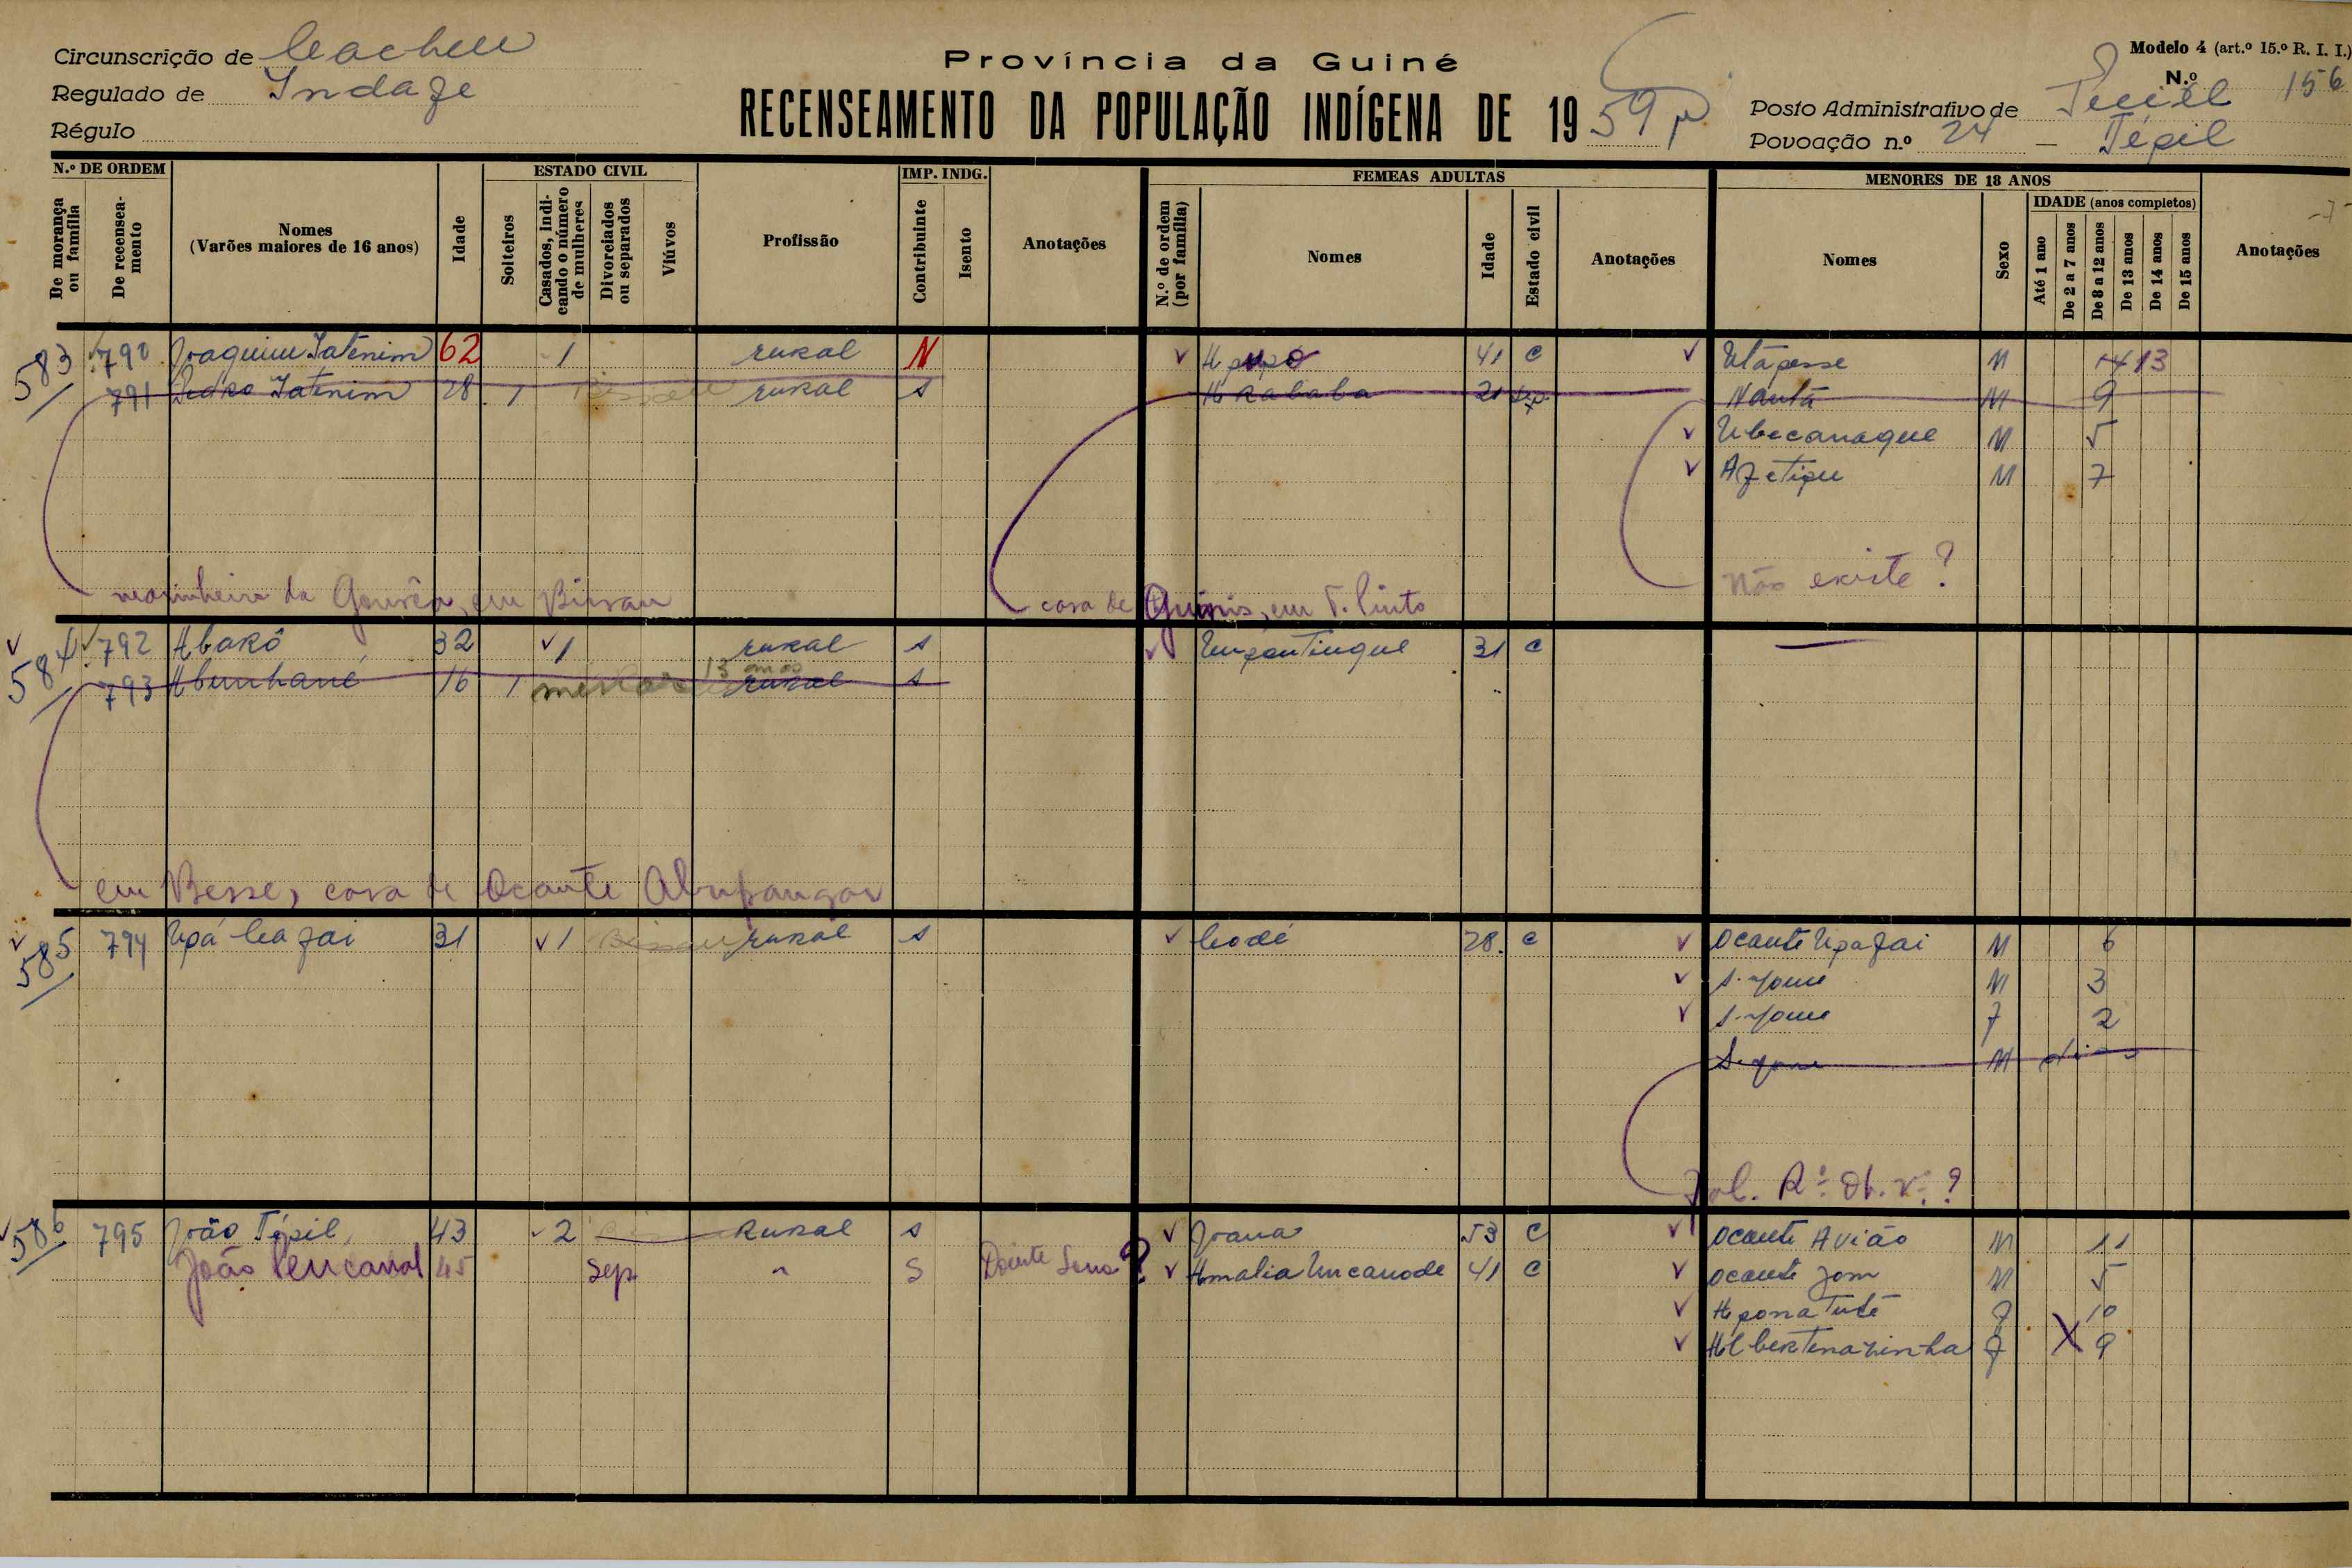 Circunscrição de Cacheu
Regulado de Indafe
Régulo
Província da Guiné
RECENSEAMENTO DA POPULAÇÃO INDÍGENA DE 1959
Modelo 4 (art.º 15.º R. I. I.)
N.º 156
Posto Administrativo de
Povoação n.º 24 – Tépil
N.º DE ORDEM
De morança ou família
De recenseamento
Nomes
(Varões maiores de 16 anos)
Idade
ESTADO CIVIL
Solteiros
Casados, indicando o número de mulheres
Divorciados ou separados
Viúvos
Profissão
IMP. INDG.
Contribuinte
Isento
Anotações
FEMEAS ADULTAS
N.º de ordem (por família)
Nomes
Idade
Estado civil
Anotações
MENORES DE 18 ANOS
Nomes
Sexo
IDADE (anos completos)
Até 1 ano
De 2 a 7 anos
De 8 a 12 anos
De 13 anos
De 14 anos
De 15 anos
Anotações
-7-
583 790 Joaquim Iatenim 62 1 rural N Apupó 41 C Utápesse M 14 13
791 Pedro Iatenim 28 1 rural s Akababa 21 sep. Nautá M 9
Ubecanaque M 5
M 7
Não existe?
marinheiro da Gouvêa, em Bissau casa de em T. Pinto
584 792 Abakó 32 1 rural s Umpontinque 31 C —
793 Abunhané 16 1 menor 13 anos rural s
em Besse, casa de Ocante
585 794 Upá Cafai 31 1 Bissau rural s Codé 28 C Ocante Upafai M 6
s. nome M 3
s. nome F 2
s. nome M dias
586 795 João Tépil 43 2 Rural s Joana 53 C Ocante Avião M 11
João 45 Sep. " S Doente Sono? Amalia Uncanode 41 C Ocante Jom M 5
Apona Tuté F 10
Albertenazinha F X 9